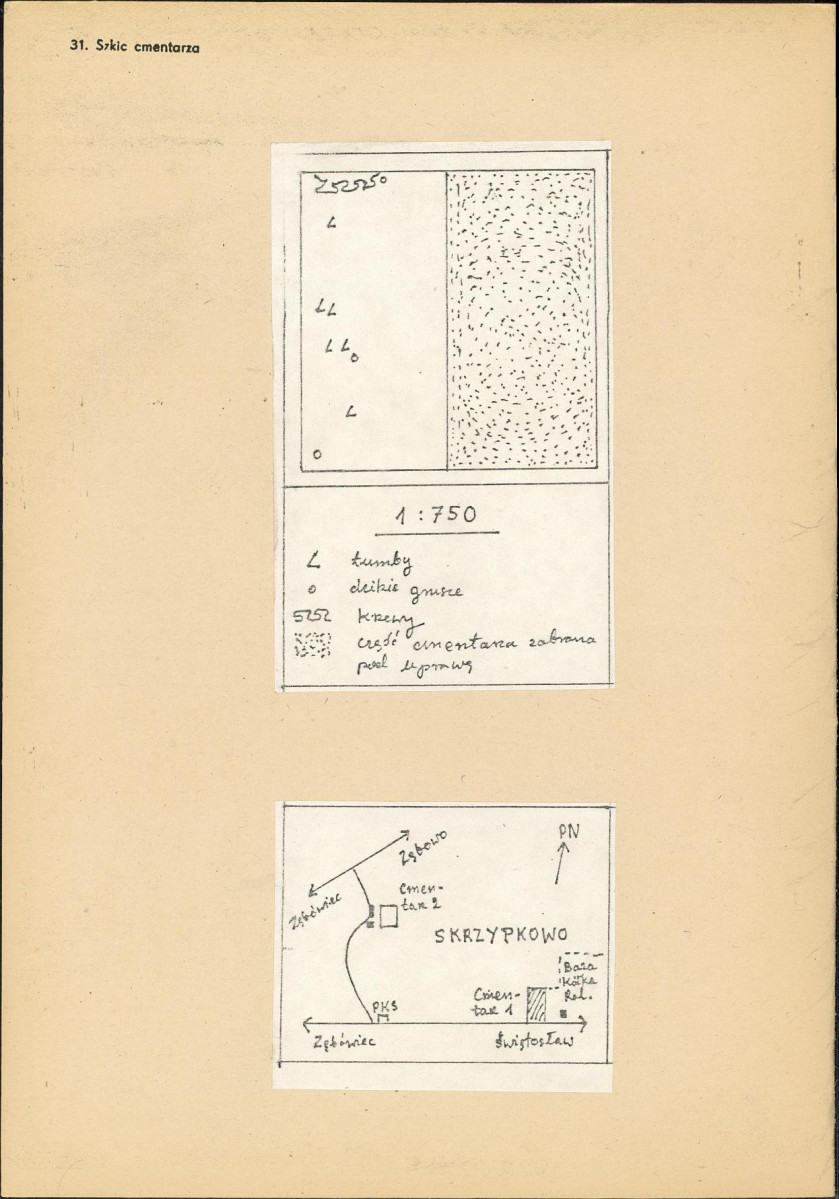 31. Szkic cmentarza
1 : 750
tumby
dzikie grusze
krzewy
część cmentarza zabrana
pod uprawę
PN
Zębowo
Zębówiec
Cmen-
tarz 2
SKRZYPKOWO
Baza
Kółka
Rol.
Cmen-
tarz 1
PKS
Zębówiec
Świętosław